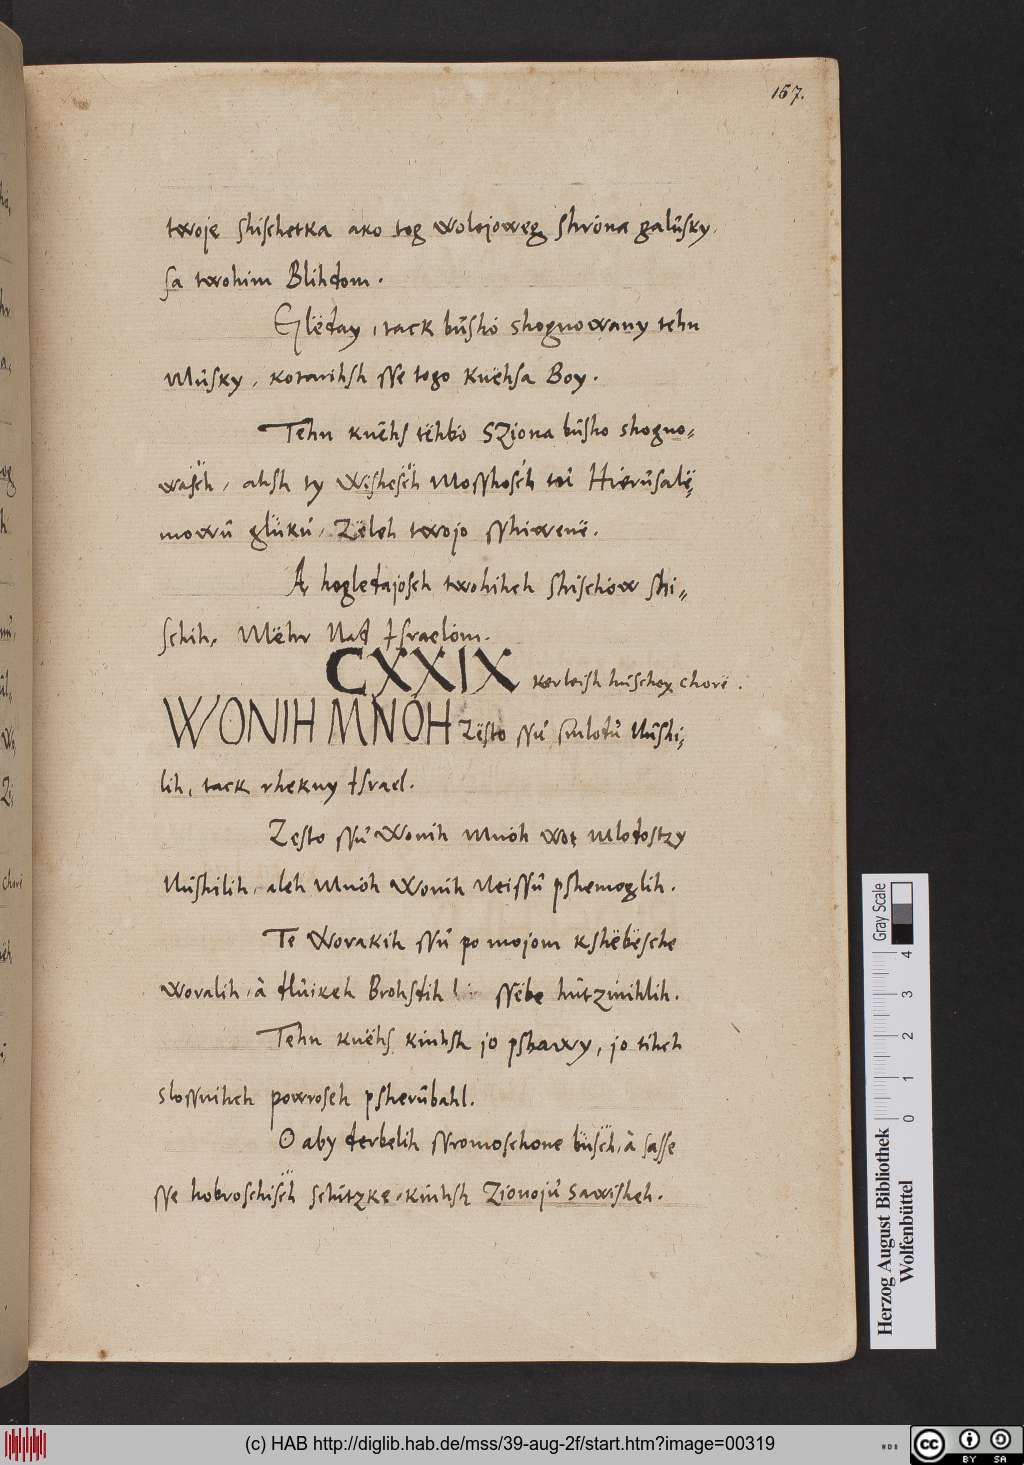 167.
twoje shischetka ako tog wolejoweg shróna galûsky
sa twohim Blihdom.
Glëday, tack bûshó shognowany tehn
Mûsky, kotarihsh sse togo Knëhsa Boy.
Tehn knëhs tëhbó SZiona bûsho shogno=
wasch, ahsh ty wishesch Mosshosch toû Hierûsalë=
mowû glûkû, Zëleh twojo sshiwenë.
A hogledajosch twohihch shischów shi=
schih, Mëhr Nad Israelóm.
CXXIX kerleish hûschex chorë.
WONIH MNÓH Zësto ssû smlodû Nûshi=
lih, tack rhekny Israel.
Zesto ssû wonih Mnóh wot Mlodostzy
Nûshilih, aleh Mnóh wonih Neissû pshemoglih.
Te Worakih ssû po mojom kshëbësche
woralih, à dlûikeh Brohsdih ssëbe hûtzinihlih.
Tehn knëhs kinhsh jo pshawy, jo tihch
slossnihch powroseh psherûbahl.
O aby derbelih ssromoschone bûsch, à sasse
sse hobroschisch schûtzke, kinhsh Zionojû sawisheh.
Gray Scale
0 1 2 3 4
Herzog August Bibliothek
Wolfenbüttel
(c) HAB http://diglib.hab.de/mss/39-aug-2f/start.htm?image=00319
WDB
cc BY SA